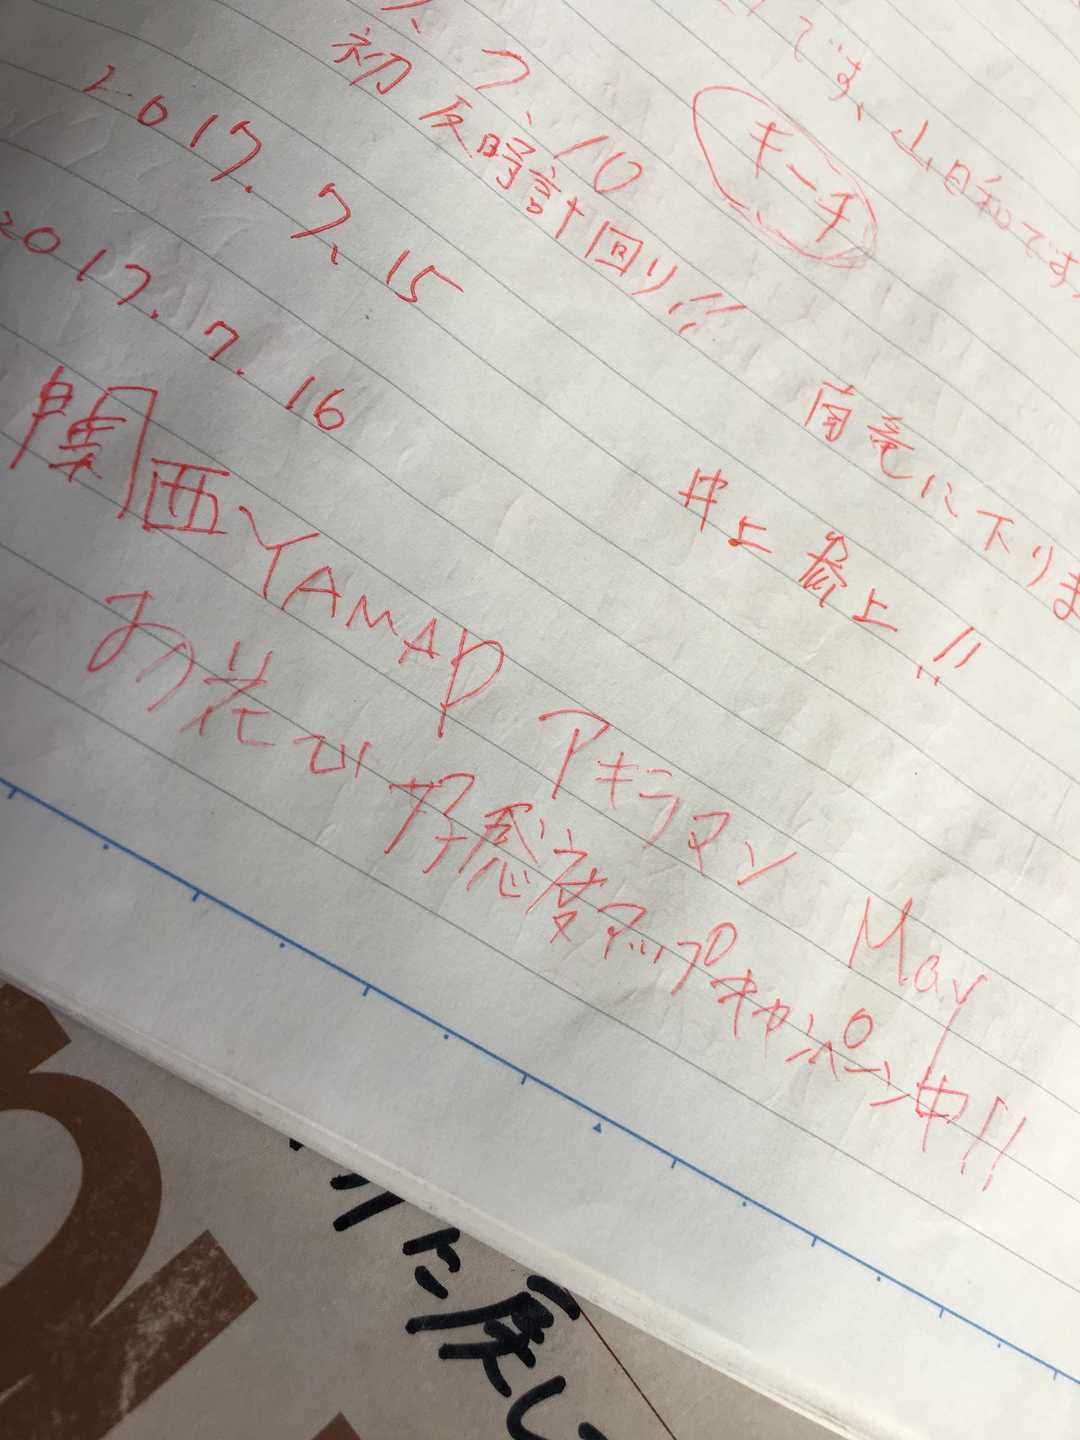 です、山日和です
7.10
キーチ
初反時計回り!!
2017.7.15
南竜に下りま
2017.7.16
井上参上!!
関西YAMAP アキラマン May
お花び好感度アップキャンペーン中!!
に戻し